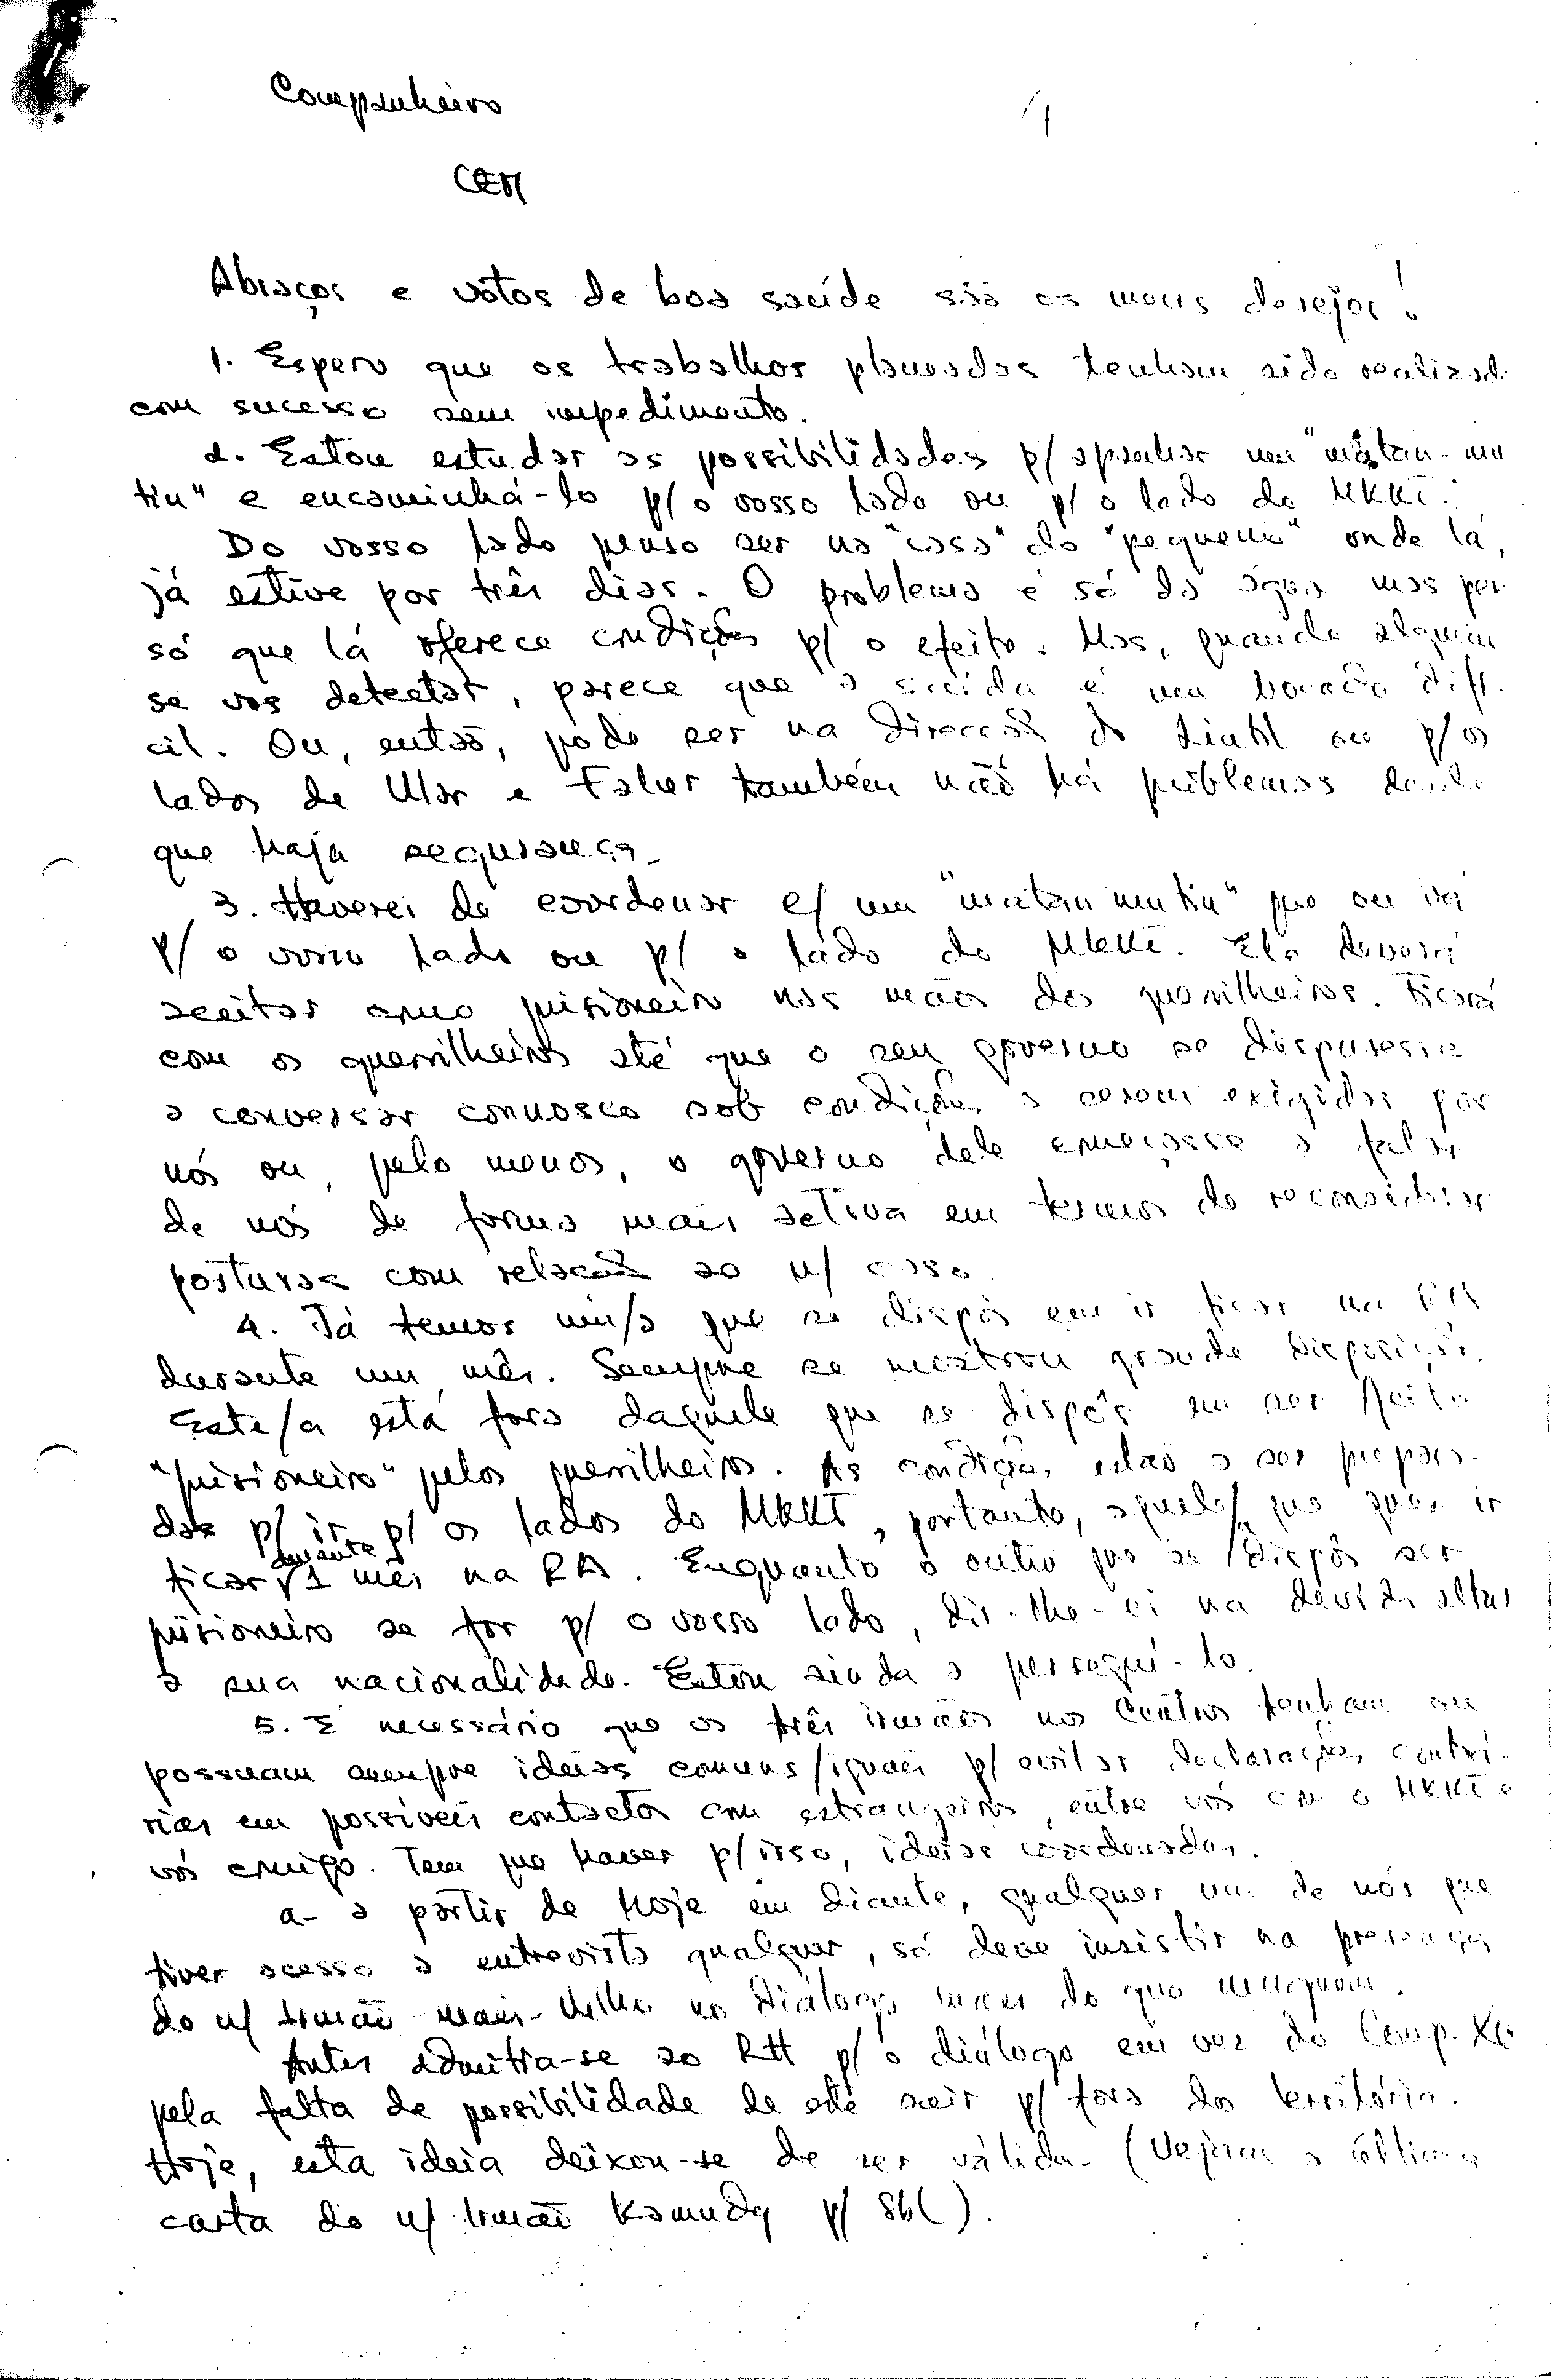 Companheiro
CEM
Abraços e votos de boa saúde são os meus desejos!
1. Espero que os trabalhos planeados tenham sido realizad
com sucesso sem impedimento.
2. Estou estudar as possibilidades p/ apanhar um "matan-mu
tin" e encaminhá-lo p/ o vosso lado ou p/ o lado do MKKI.
Do vosso lado penso ser na "casa" do "pequeno" onde lá,
já estive por três dias. O problema é só da água mas pen
só que lá oferece condições p/ o efeito. Mas, quando alguém
se vos detectar, parece que a saída é um bocado difí-
cil. Ou, então, pode ser na direcção do p/ os
lados de Ular e Faler também não há problemas desde
que haja segurança.
3. Haverei de coordenar c/ um "matan mutin" que ou irá
p/ o vosso lado ou p/ o lado do MKKI. Ele deverá
aceitar como prisioneiro nas mãos dos guerrilheiros. Ficará
com os guerrilheiros até que o seu governo se dispusesse
a conversar connosco sob condições a serem exigidas por
nós ou, pelo menos, o governo dele começasse a falar
de nós de forma mais activa em termos de reconsiderar
posturas com relação ao n/ caso.
4. Já temos um/a que se dispôs em ir ficar na RA
durante um mês. Sempre se mostrou grande disposição.
Este/a está fora daquele que se dispôs em ser feito
"prisioneiro" pelos guerrilheiros. As condições estão a ser prepara-
das p/ ir p/ os lados do MKKI, portanto, aquele/ que quer ir
ficar durante 1 mês na RA. Enquanto o outro que se dispôs ser
prisioneiro se for p/ o vosso lado, dir-lhe-ei na devida altur
a sua nacionalidade. Estou ainda a persegui-lo.
5. É necessário que os três irmãos nos Centros tenham ou
possuam sempre ideias comuns/iguais p/ evitar declarações contrá-
rias em possíveis contactos com estrangeiros, entre vós com o MKKI e
vós comigo. Tem que haver p/ isso, ideias coordenadas.
a- a partir de hoje em diante, qualquer um de nós que
tiver acesso a entrevista qualquer, só deve insistir na presença
do n/ Irmão mais-Velho no Diálogo, mais do que ninguém.
Antes admitia-se ao RH p/ o diálogo em vez do Comp-XG
pela falta de possibilidade de este sair p/ fora do território.
Hoje, esta ideia deixou-se de ser válida. (Vejam a última
carta do n/ Irmão Kamudy p/ ).